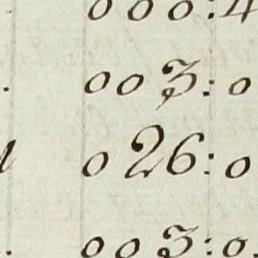 000:4
. 003:0
026:0
. 003:0.